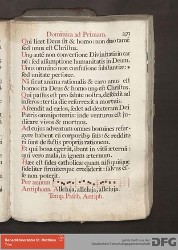 Dominica ad Primam.
Qui licet Deus sit & homo: non duo tamé
sed unus est Christus.
Unus autem non conversione Divinitatis in car
né: sed assumptione humanitatis in Deum.
Unus omnino non confusione substantiæ:
sed unitate personæ.
Ná sicut anima rationalis & caro unus est
homo: ita Deus & homo unus est Christus.
Qui passus est pro salute nostra, descendit ad
inferos: tertia die resurrexit a mortuis.
Ascendit ad cælos, sedet ad dexteram Dei
Patris omnipotentis: inde venturus est ju-
dicare vivos & mortuos.
Ad cujus adventum omnes homines resur-
gere habent cú corporibus suis: & reddituri
sunt de factis propriis rationem.
Et qui bona egerunt, ibunt in vitá æternā:
qui vero mala, in ignem æternum.
Hæc est fides catholica: quam nisi quisque
fideliter firmiterque crediderit: salvus esse
non poterit.
Antiphona. Alleluja, alleluja, alleluja.
Temp. Pasch. Antiph.
DFG